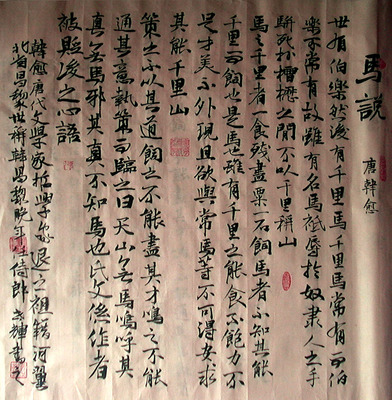 馬説
唐韓愈
世有伯樂然後有千里馬千里馬常有而伯
樂不常有故雖有名馬祗辱於奴隸人之手
駢死於槽櫪之間不以千里稱也
馬之千里者一食或盡粟一石飼馬者不知其能
千里而飼也是馬也雖有千里之能食不飽力不
足才美不外現且欲與常馬等不可得安求
其能千里也
策之不以其道飼之不能盡其才鳴之不能
通其意執策而臨之曰天下無馬嗚呼其
真無馬邪其真不知馬也此文係作者
被貶後之心語
韓愈唐代文學家哲學家字退之祖籍河
北昌黎世稱韓昌黎晚年任侍郎